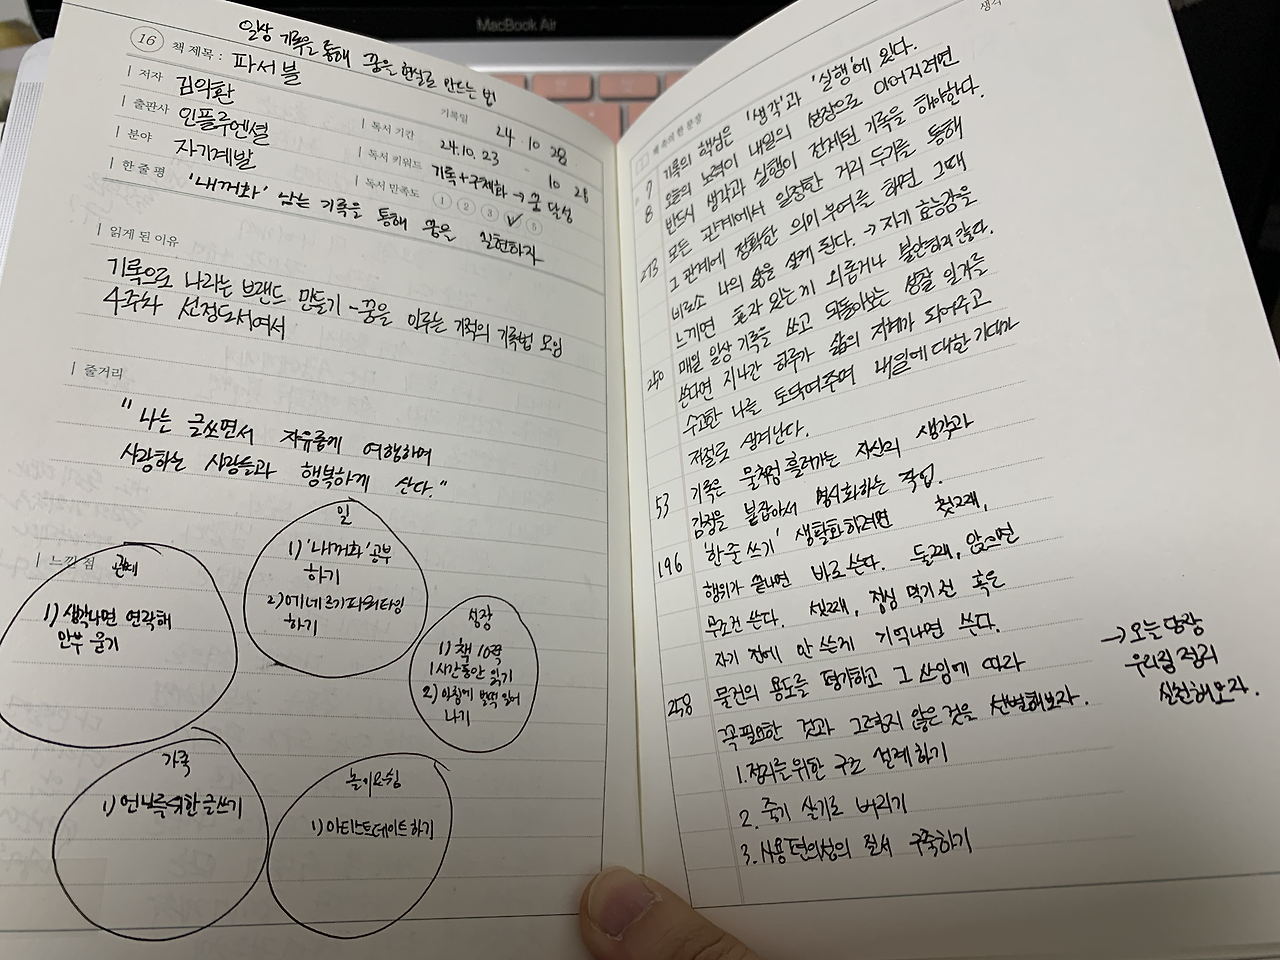 MacBook Air
일상 기록을 통해 꿈을 현실로 만드는 법
16 책 제목 : 파서블
저자 김익환
기록일 24 10 28
출판사 인플루엔셜
독서 기간 24.10.23 - 10 28
분야 자기계발
독서 키워드 기록+구체화→꿈 달성
한 줄 평 '내꺼화' 남는 기록을 통해 꿈을 실현하자
독서 만족도 1 2 3 ✓ 5
읽게 된 이유
기록으로 나라는 브랜드 만들기 - 꿈을 이루는 기적의 기록법 모임
4주차 선정도서여서
줄거리
"나는 글쓰면서 자유롭게 여행하며
사랑하는 사람들과 행복하게 산다."
느낀 점
관계
1) 생각나면 연락해
안부 묻기
일
1) '내꺼화' 공부
하기
2) 에네르기파워타임
하기
성장
1) 책 10쪽
1시간동안 읽기
2) 아침에 벌떡 일어
나기
가족
1) 언니를 위한 글쓰기
놀이요쉼
1) 아티스트데이트하기
생각
책 속의 한 문장
7 기록의 핵심은 '생각'과 '실행'에 있다.
8 오늘의 노력이 내일의 성장으로 이어지려면
반드시 생각과 실행이 전제된 기록을 해야한다.
273 모든 관계에서 일정한 거리 두기를 통해
그 관계에 정확한 의미 부여를 하면 그때
비로소 나의 삶을 살게 된다. → 자기 효능감을
느끼면 혼자 있는게 외롭거나 불안하지 않다.
250 매일 일상 기록을 쓰고 되돌아보는 성찰 일지를
쓴다면 지나간 하루가 삶의 지혜가 되어주고
수고한 나를 토닥여주며 내일에 대한 기대가
저절로 생겨난다.
53 기록은 물처럼 흘러가는 자신의 생각과
감정을 붙잡아서 명시화하는 작업.
196 '한줄 쓰기' 생활화하려면 첫째,
행위가 끝나면 바로 쓴다. 둘째, 앉으면
무조건 쓴다. 셋째, 점심 먹기 전 혹은
자기 전에 안 쓴게 기억나면 쓴다.
258 물건의 용도를 평가하고 그 쓰임에 따라
꼭 필요한 것과 그렇지 않은 것을 선별해보자.
→ 오늘 당장
우리집 정리
실천해보자.
1. 정리를 위한 구조 설계하기
2. 죽기 살기로 버리기
3. 사용 편의성의 질서 구축하기